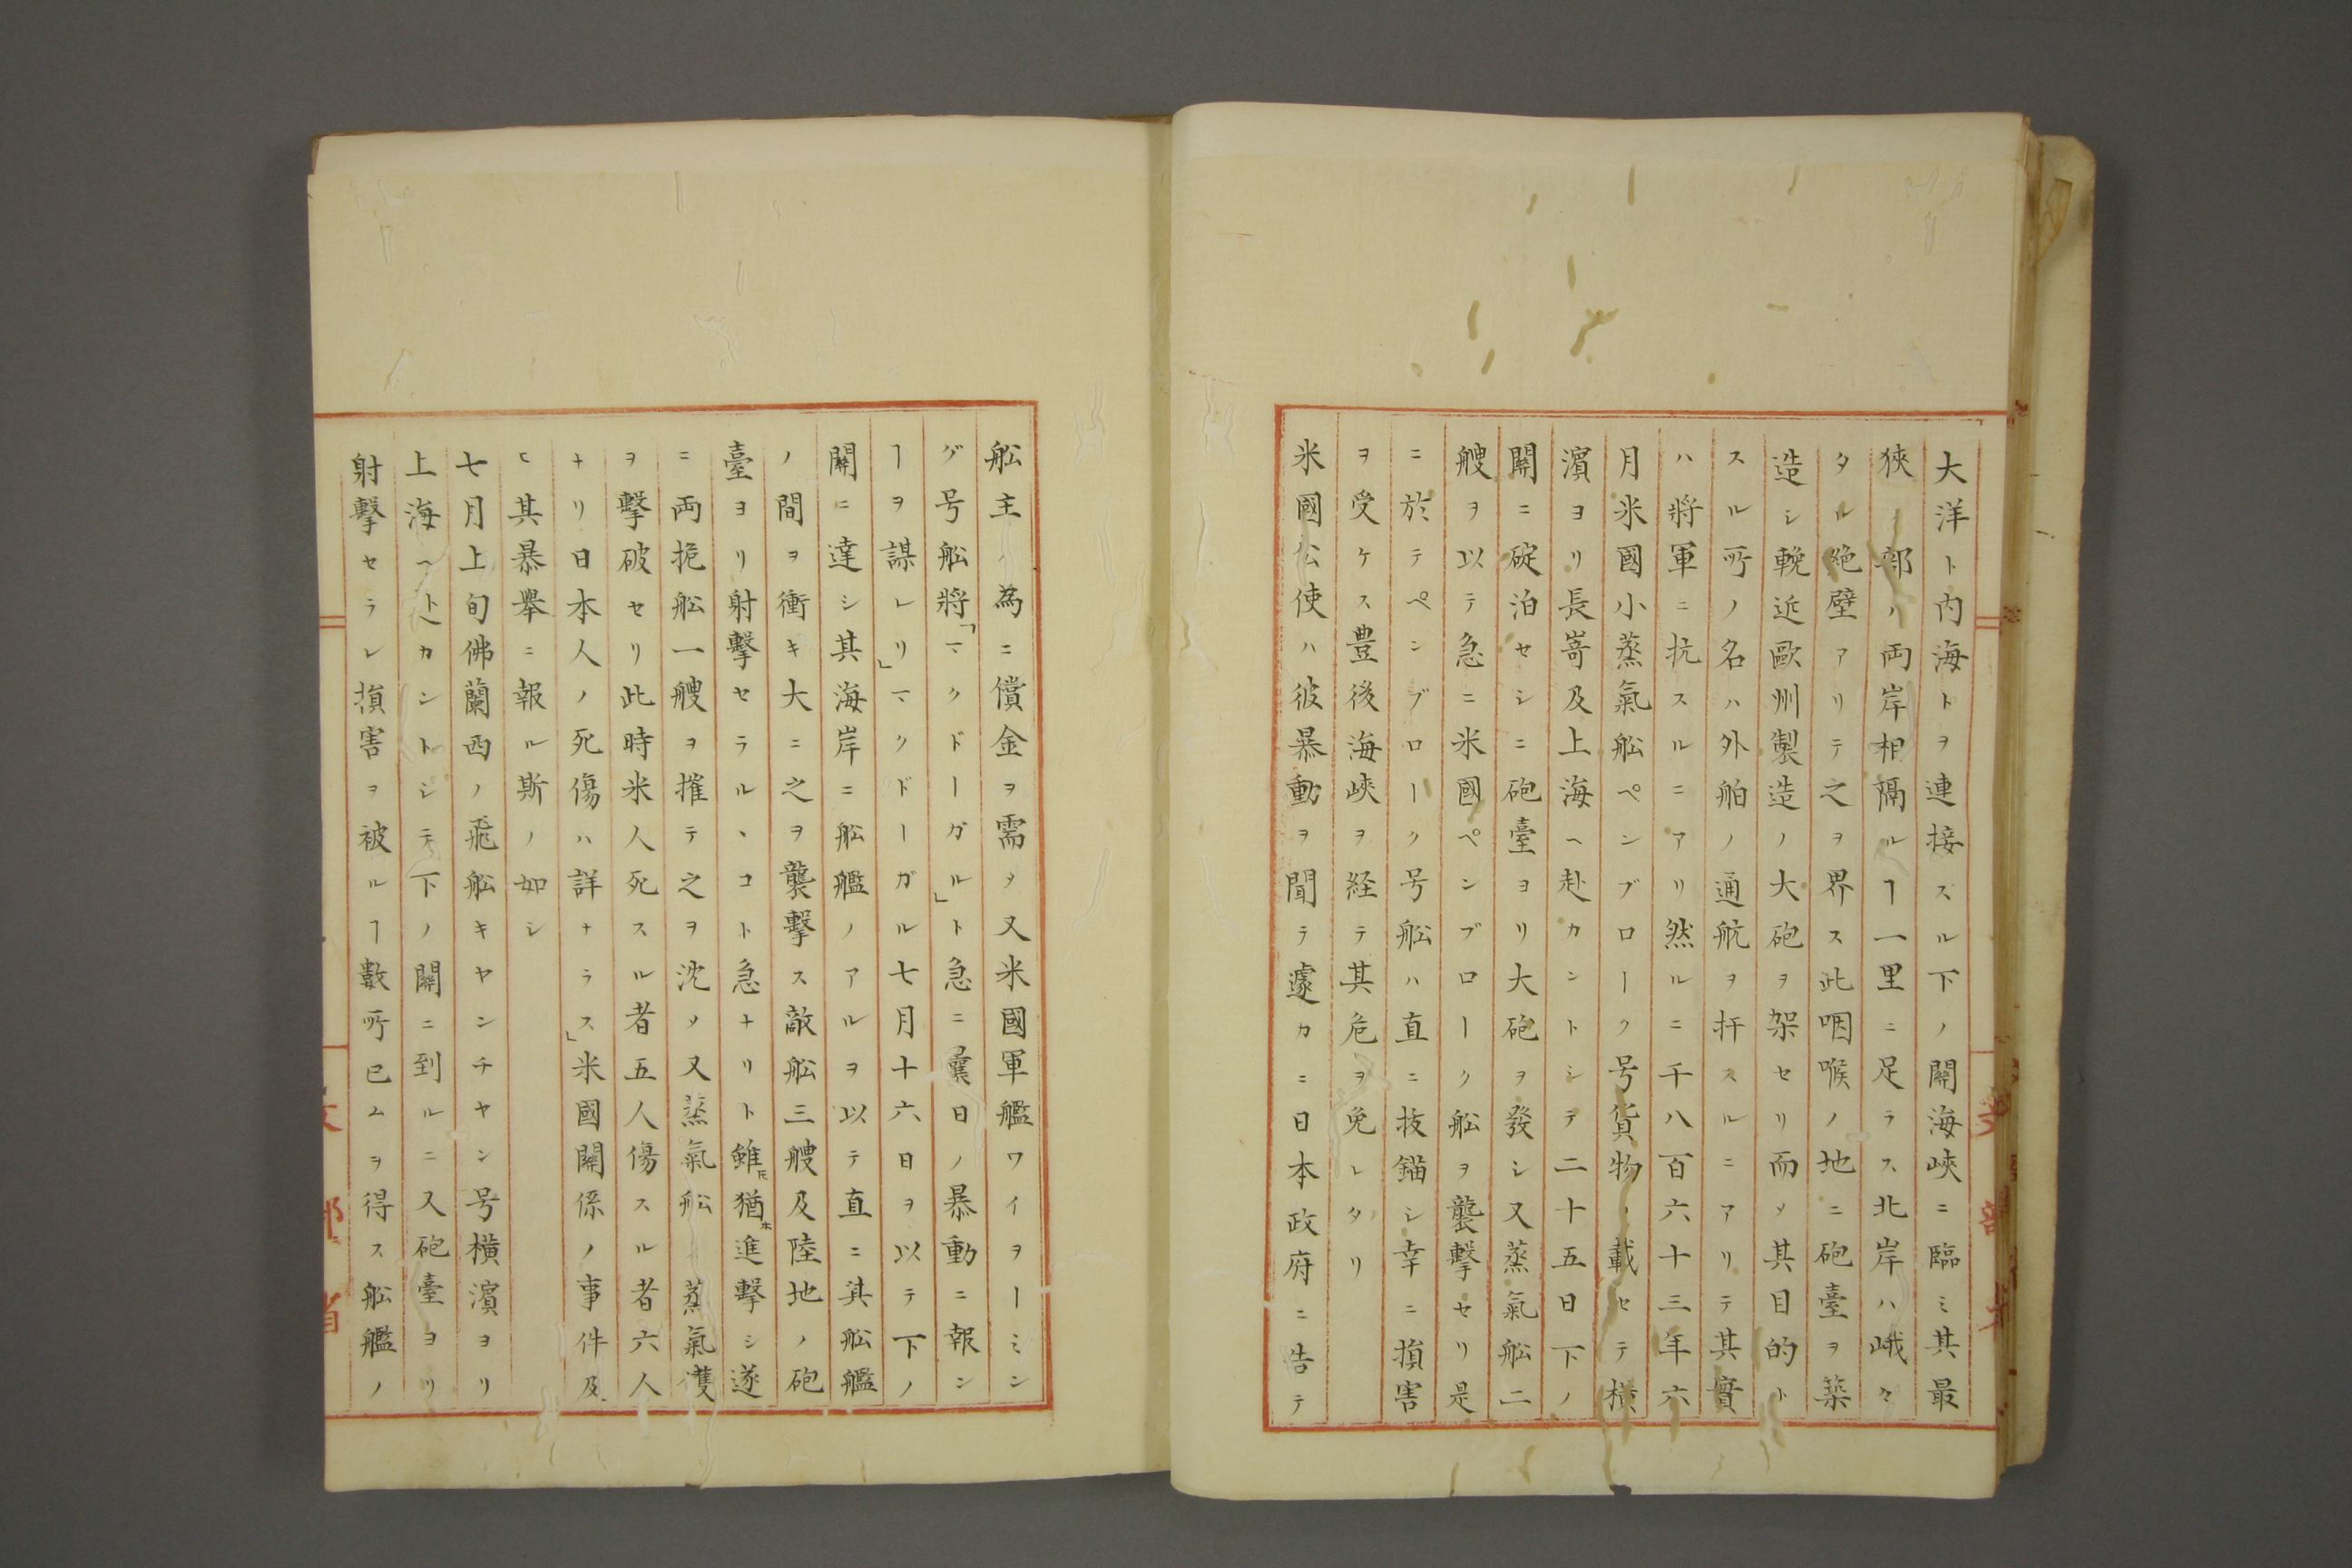 大洋ト内海トヲ連接スル下ノ關海峽ニ臨ミ其最
狹部ノ両岸相隔ルヿ一里ニ足ラス北岸ハ峨々
タル絶壁アリテ之ヲ界ス此咽喉ノ地ニ砲臺ヲ築
造シ輓近歐州製造ノ大砲ヲ架セリ而メ其目的ト
スル所ノ名ハ外舶ノ通航ヲ扞スルニアリテ其實
ハ將軍ニ抗スルニアリ然ルニ千八百六十三年六
月米國小蒸氣舩ペンブローク号貨物ヲ載セテ横
濱ヨリ長嵜及上海ヘ赴カントシテ二十五日下ノ
關ニ碇泊セシニ砲臺ヨリ大砲ヲ發シ又蒸氣舩二
艘ヲ以テ急ニ米國ペンブローク舩ヲ襲撃セリ是
ニ於テペンブローク号舩ハ直ニ抜錨シ幸ニ損害
ヲ受ケス豊後海峽ヲ経テ其危ヲ免レタリ
米國公使ハ彼暴動ヲ聞テ遽カニ日本政府ニ告テ
舩主ノ為ニ償金ヲ需メ又米國軍艦ワイヲーミン
グ号舩將「マクドーガル」ト急ニ曩日ノ暴動ニ報ン
ヿヲ謀レリ」マクドーガル七月十六日ヲ以テ下ノ
關ニ達シ其海岸ニ舩艦ノアルヲ以テ直ニ其舩艦
ノ間ヲ衝キ大ニ之ヲ襲撃ス敵舩三艘及陸地ノ砲
臺ヨリ射撃セラルヽコト急ナリト雖𪜈猶ホ進撃シ遂
ニ両桅舩一艘ヲ摧テ之ヲ沈メ又蒸氣舩ノ蒸氣鑊
ヲ擊破セリ此時米人死スル者五人傷スル者六人
ナリ日本人ノ死傷ハ詳ナラス」米國關係ノ事件及
ヒ其暴舉ニ報ル斯ノ如シ
七月上旬佛蘭西ノ飛舩キヤンチヤン号横濱ヨリ
上海ヘトカントシテ下ノ關ニ到ルニ又砲臺ヨリ
射撃セラレ損害ヲ被ルヿ數所已ムヲ得ス舩艦ノ